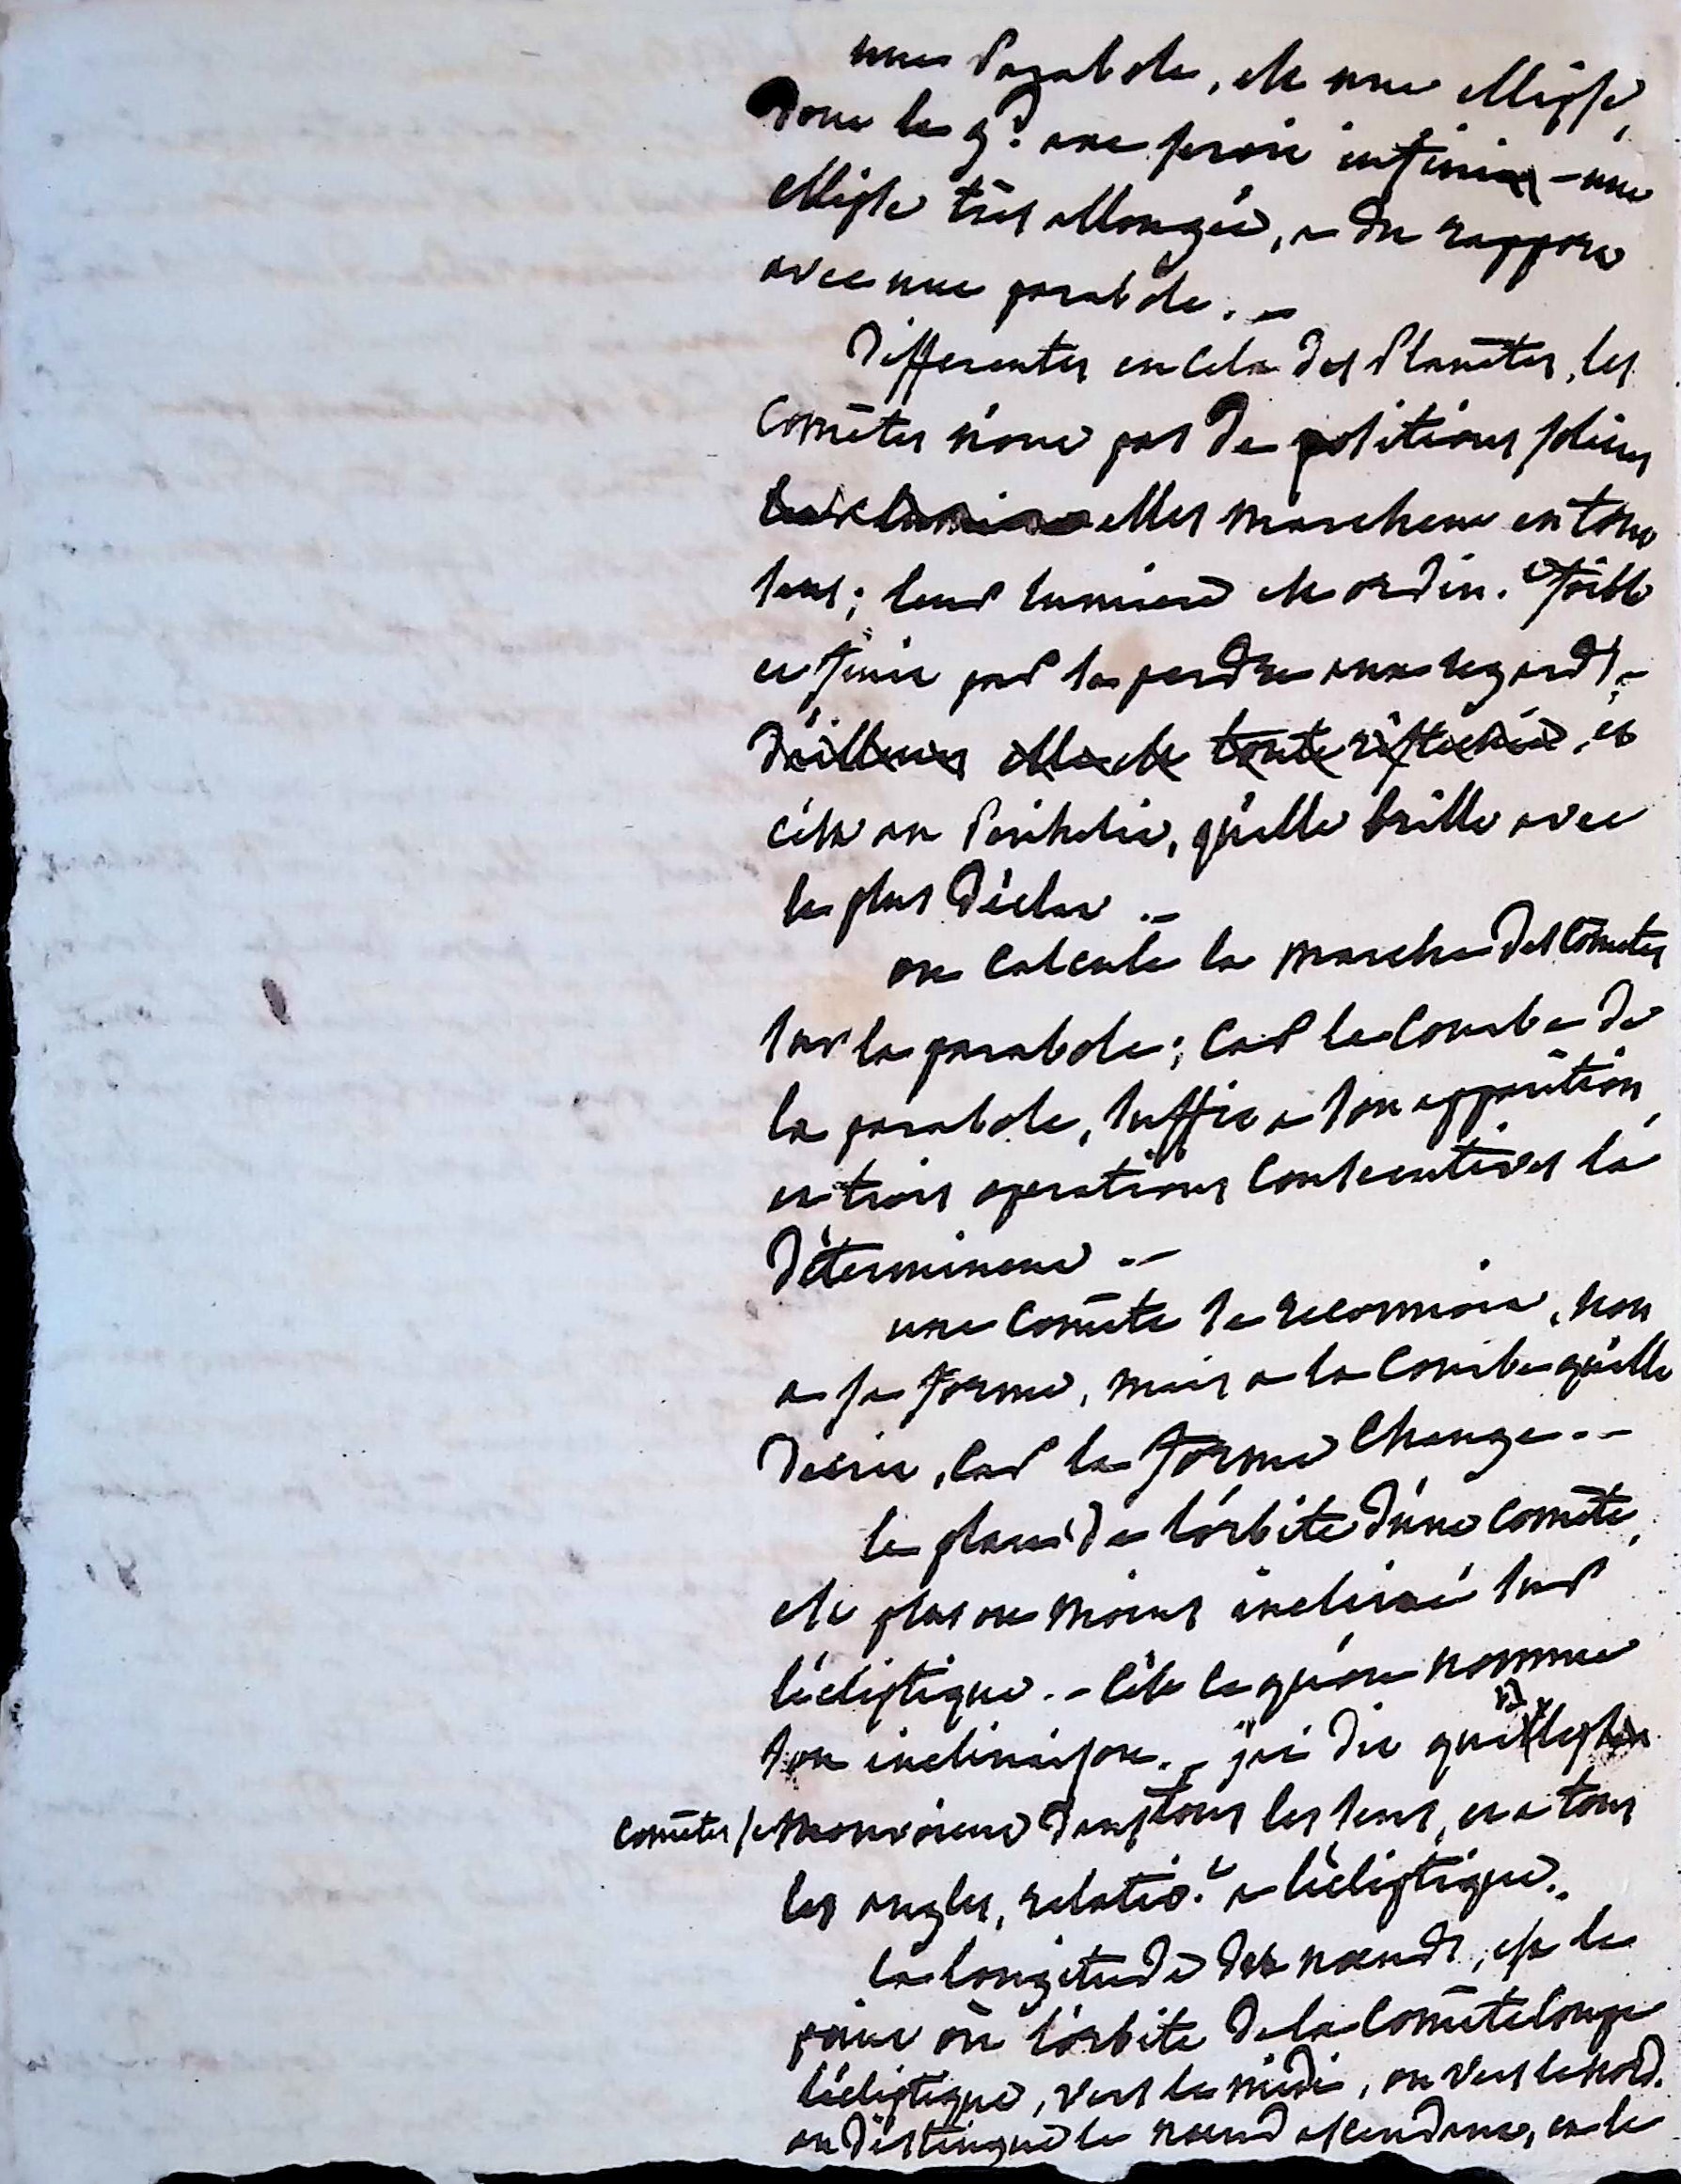 une Parabole, est une ellipse,
dont le gd. axe seroit infini - une
ellipse très allongée, a du rapport
avec une parabole. -
Differentes en cela des Planètes, les
Comètes n'ont pas de positions fixes
elles marchent en tout
sens; leur lumiere est ordin.t foible
et finit par se perdre aux regards. -
d'ailleurs elle est toute réfléchie, et
c'est au Perihelie, qu'elle brille avec
le plus d'éclat. -
on calcule la marche des Comètes
sur la parabole; car la Courbe de
la parabole, suffit a son apparition,
et trois operations consecutives la
déterminent. -
une Comète se reconnoit, non
a sa forme, mais a la Courbe qu'elle
decrit, car la forme change. -
le plan de l'orbite d'une Comète,
est plus ou moins incliné sur
l'écliptique. - c'est ce qu'on nomme
son inclinaison. - j'ai dit que les
Comètes se mouvoient dans tous les sens, et a tous
les angles, relativ.t a l'écliptique.
la longitude des noeuds, est le
point où l'orbite de la Comète coupe
l'écliptique, vers le midi, ou vers le nord.
on distingue le noeud ascendant, et le